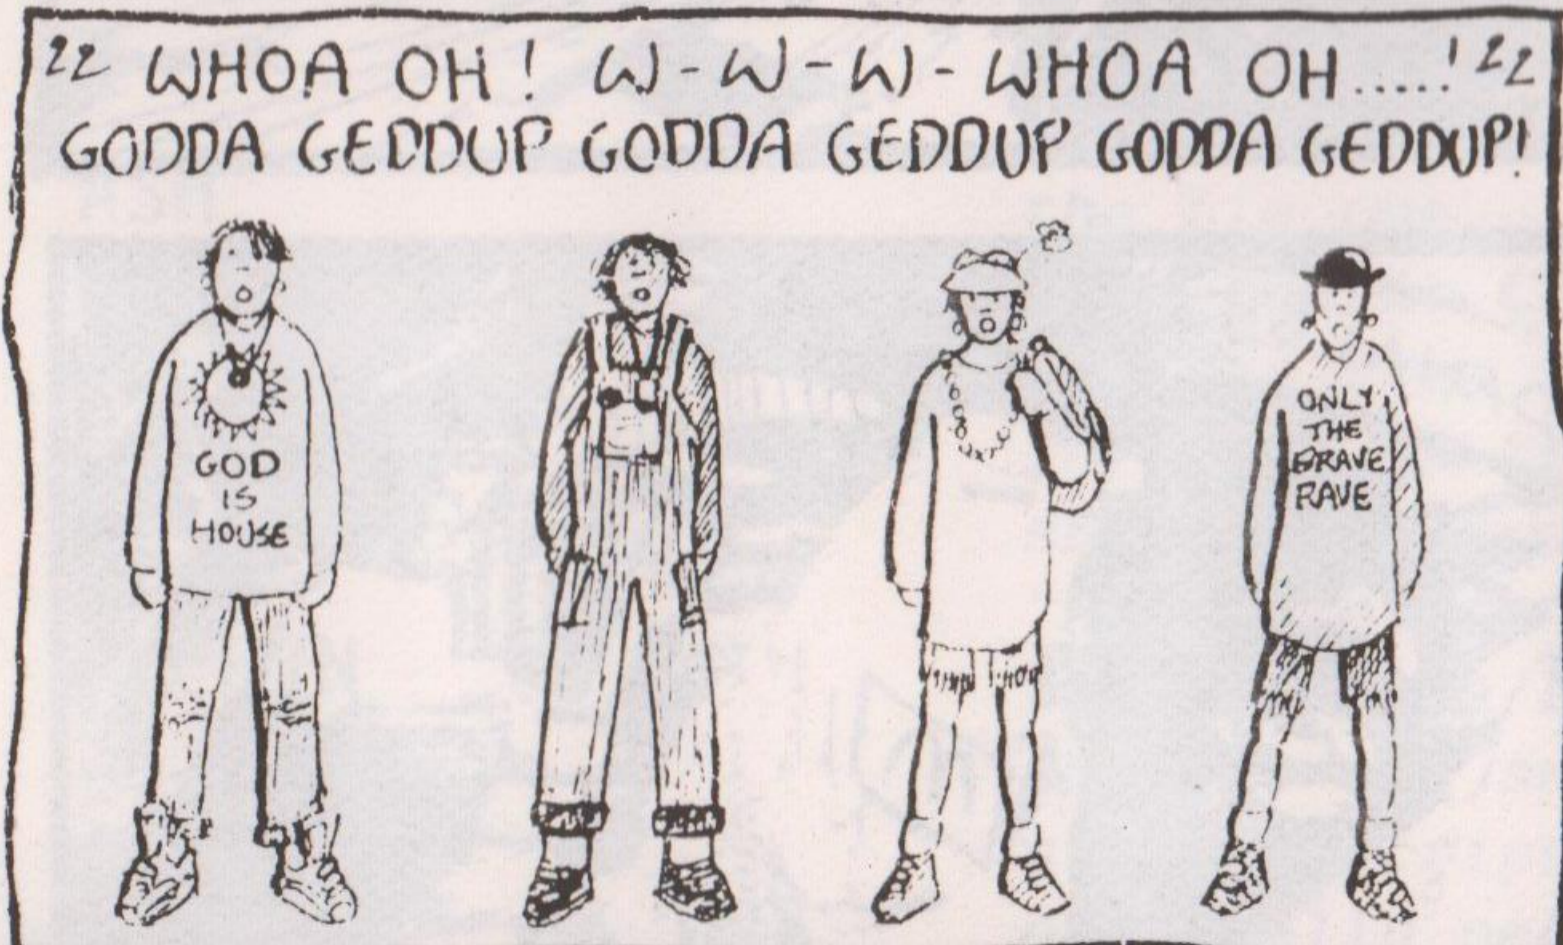 WHOA OH! W-W-W-WHOA OH.....!
GODDA GEDDUP GODDA GEDDUP GODDA GEDDUP!
GOD
IS
HOUSE
ONLY
THE
BRAVE
RAVE